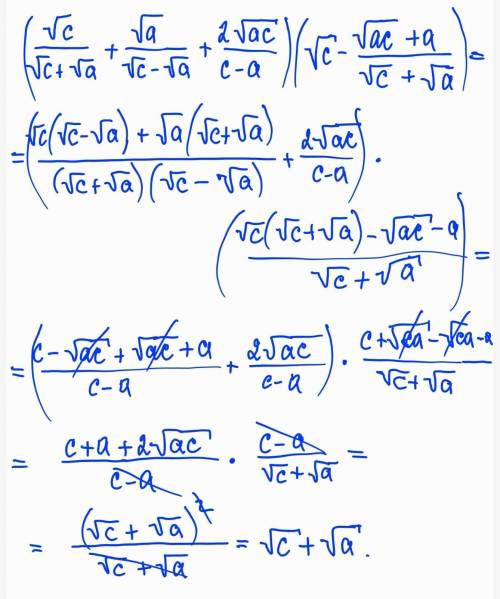 (√c/(√c+√a) + √a/(√c-√a) + 2√ac/(c-a)) (√c - (√ac + a)/(√c + √a)) =
= ((√c(√c-√a) + √a(√c+√a))/((√c+√a)(√c-√a)) + 2√ac/(c-a)) ·
((√c(√c+√a) - √ac - a)/(√c + √a)) =
= ((c - √ac + √ac + a)/(c-a) + 2√ac/(c-a)) · (c+√ca - √ca - a)/(√c+√a)
= (c+a+2√ac)/(c-a) · (c-a)/(√c+√a) =
= (√c + √a)²/(√c + √a) = √c + √a.